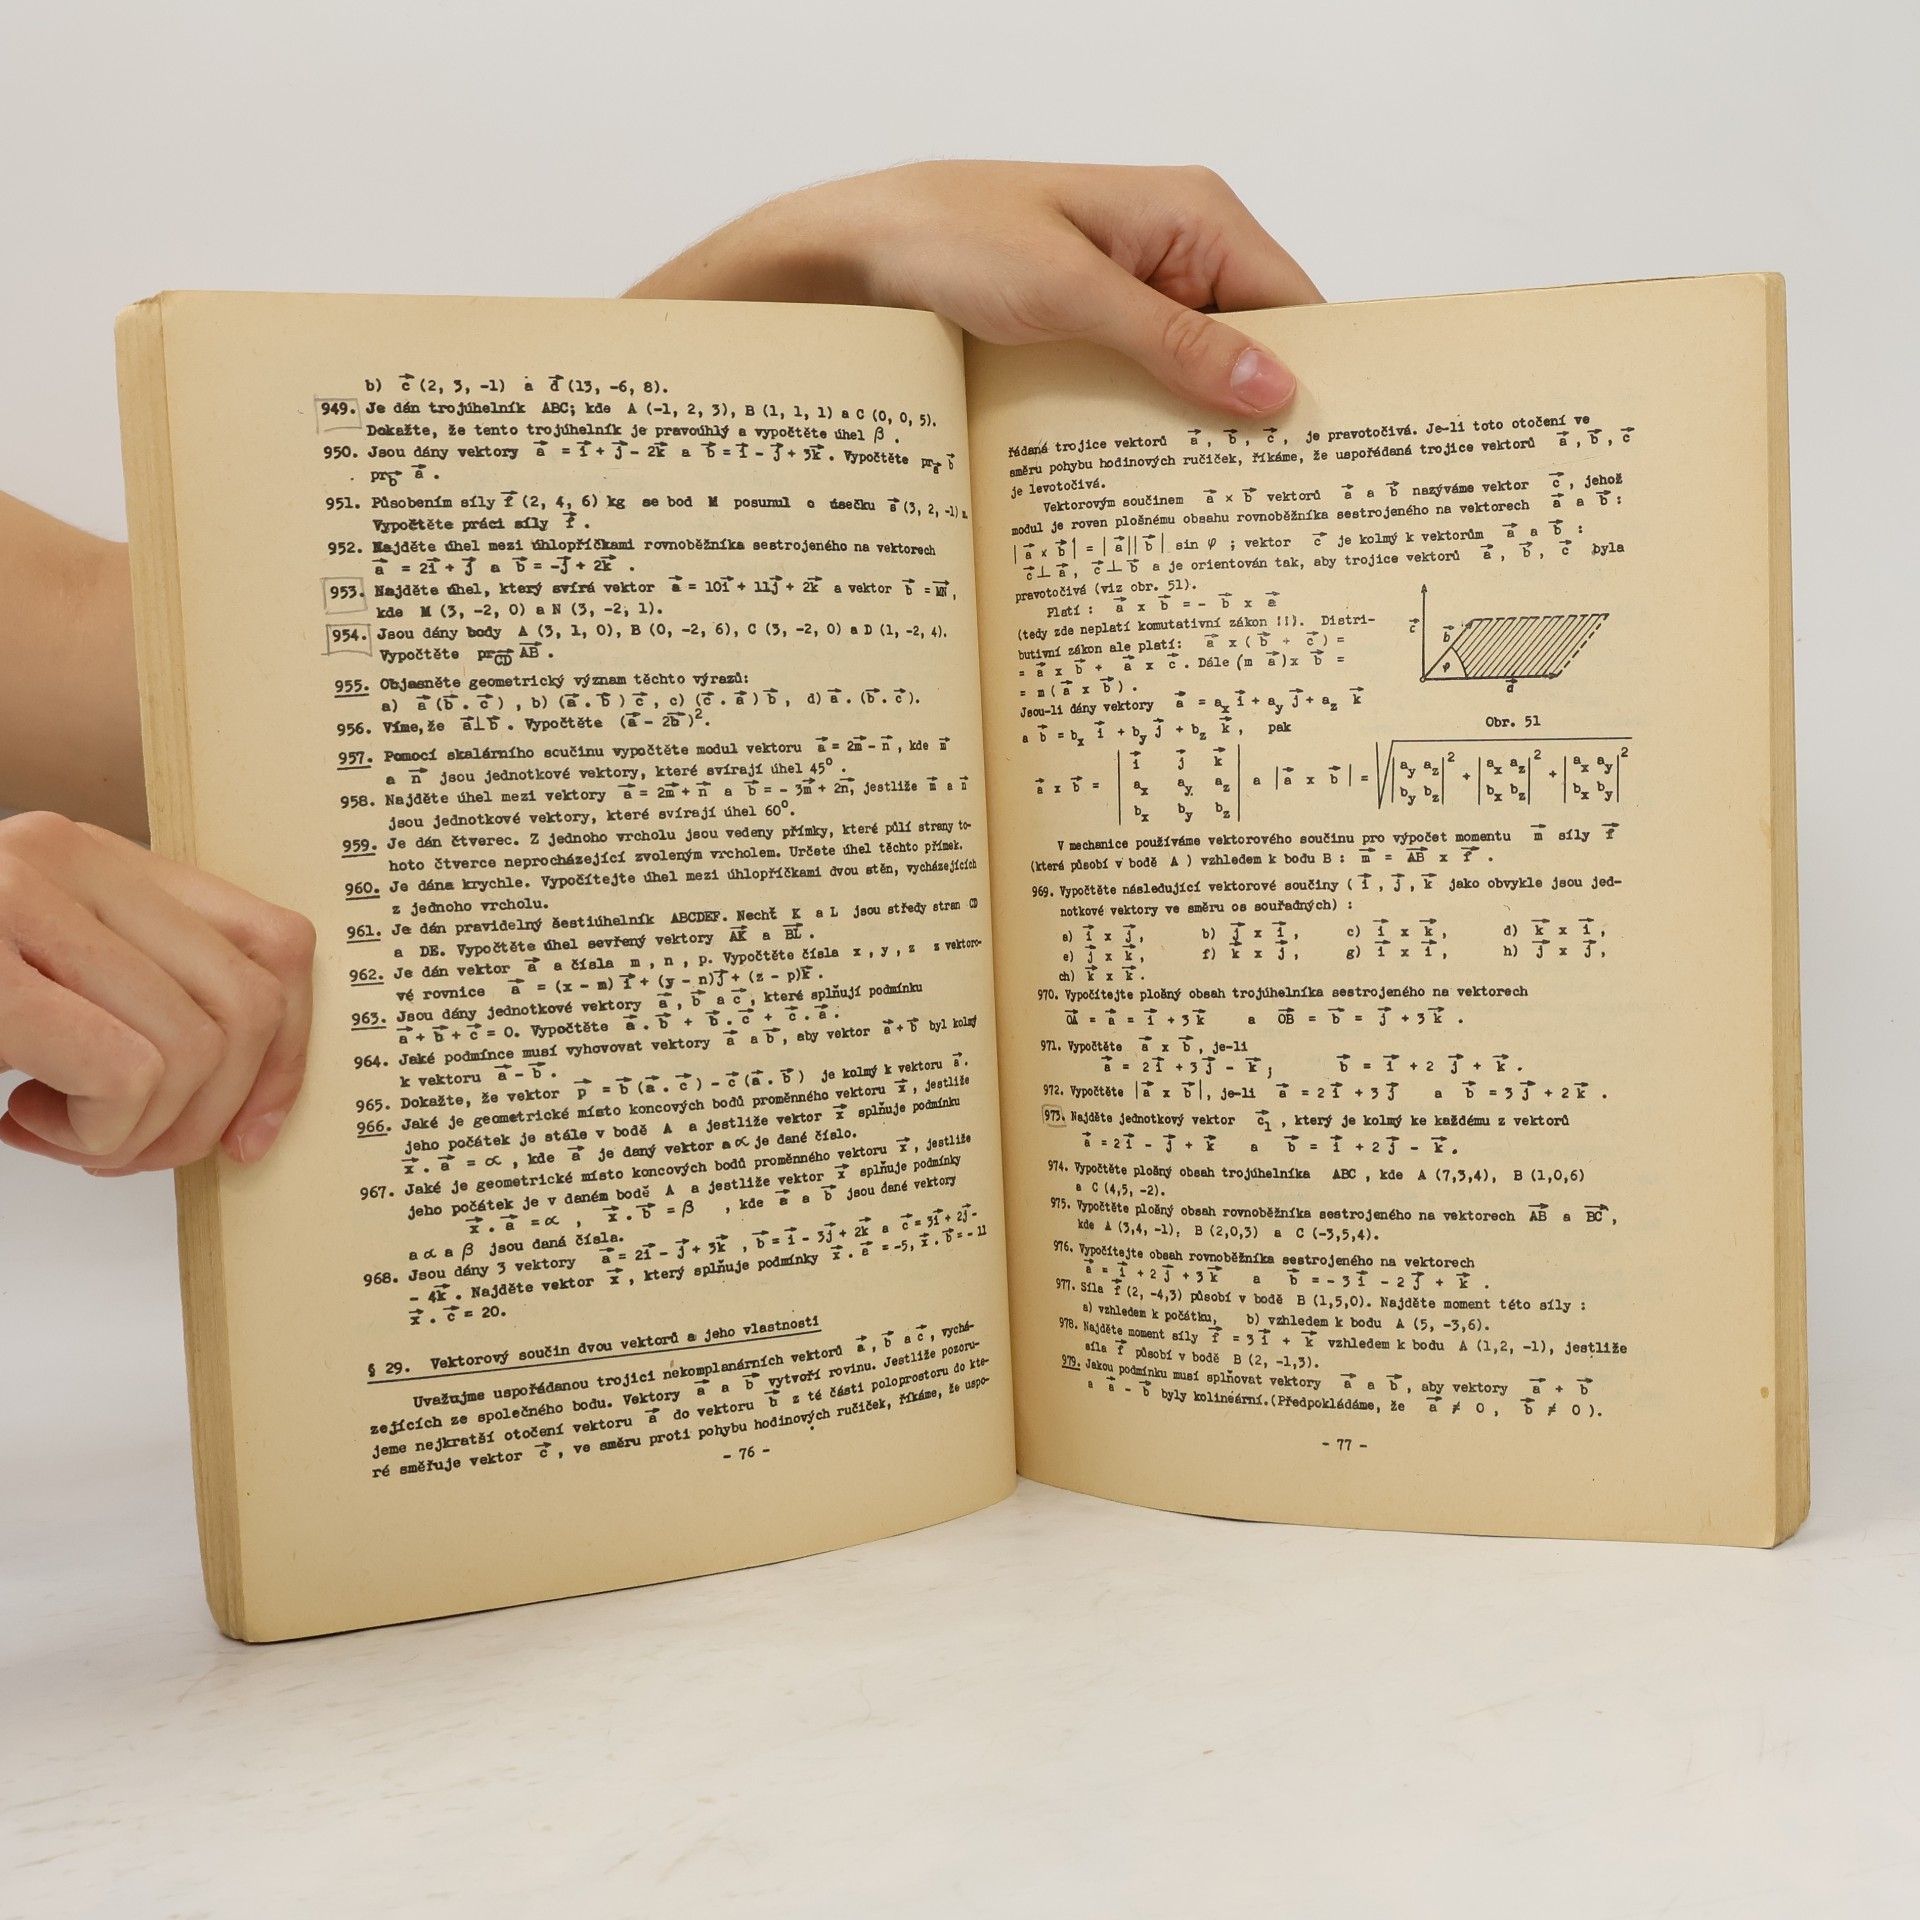 b) c⃗ (2, 3, -1) a d⃗ (13, -6, 8).
949. Je dán trojúhelník ABC; kde A (-1, 2, 3), B (1, 1, 1) a C (0, 0, 5).
Dokažte, že tento trojúhelník je pravoúhlý a vypočtěte úhel β .
950. Jsou dány vektory a⃗ = i⃗ + j⃗ - 2k⃗ a b⃗ = i⃗ - j⃗ + 3k⃗ . Vypočtěte pr_a⃗ b⃗
pr_b⃗ a⃗ .
951. Působením síly f⃗ (2, 4, 6) kg se bod M posunul o úsečku s⃗ (3, 2, -1) m.
Vypočtěte práci síly f⃗ .
952. Najděte úhel mezi úhlopříčkami rovnoběžníka sestrojeného na vektorech
a⃗ = 2i⃗ + j⃗ a b⃗ = -j⃗ + 2k⃗ .
953. Najděte úhel, který svírá vektor a⃗ = 10i⃗ + 11j⃗ + 2k⃗ a vektor b⃗ = MN⃗ ,
kde M (3, -2, 0) a N (3, -2, 1).
954. Jsou dány body A (3, 1, 0), B (0, -2, 6), C (3, -2, 0) a D (1, -2, 4).
Vypočtěte pr_CD⃗ AB⃗ .
955. Objasněte geometrický význam těchto výrazů:
a) a⃗ (b⃗ . c⃗ ) , b) (a⃗ . b⃗ ) c⃗ , c) (c⃗ . a⃗ ) b⃗ , d) a⃗ . (b⃗ . c⃗ ).
956. Víme,že a⃗ ⊥ b⃗ . Vypočtěte (a⃗ - 2b⃗ )².
957. Pomocí skalárního součinu vypočtěte modul vektoru a⃗ = 2m⃗ - n⃗ , kde m⃗
a n⃗ jsou jednotkové vektory, které svírají úhel 45° .
958. Najděte úhel mezi vektory a⃗ = 2m⃗ + n⃗ a b⃗ = - 3m⃗ + 2n⃗, jestliže m⃗ a n⃗
jsou jednotkové vektory, které svírají úhel 60°.
959. Je dán čtverec. Z jednoho vrcholu jsou vedeny přímky, které půlí strany to-
hoto čtverce neprocházející zvoleným vrcholem. Určete úhel těchto přímek.
960. Je dána krychle. Vypočítejte úhel mezi úhlopříčkami dvou stěn, vycházejících
z jednoho vrcholu.
961. Je dán pravidelný šestiúhelník ABCDEF. Nechť K a L jsou středy stran CD
a DE. Vypočtěte úhel sevřený vektory AK⃗ a BL⃗ .
962. Je dán vektor a⃗ a čísla m , n , p. Vypočtěte čísla x , y , z z vektoro-
vé rovnice a⃗ = (x - m) i⃗ + (y - n)j⃗ + (z - p)k⃗ .
963. Jsou dány jednotkové vektory a⃗ , b⃗ a c⃗ , které splňují podmínku
a⃗ + b⃗ + c⃗ = 0. Vypočtěte a⃗ . b⃗ + b⃗ . c⃗ + c⃗ . a⃗ .
964. Jaké podmínce musí vyhovovat vektory a⃗ a b⃗ , aby vektor a⃗ + b⃗ byl kolmý
k vektoru a⃗ - b⃗ .
965. Dokažte, že vektor p⃗ = b⃗ (a⃗ . c⃗ ) - c⃗ (a⃗ . b⃗ ) je kolmý k vektoru a⃗ .
966. Jaké je geometrické místo koncových bodů proměnného vektoru x⃗ , jestliže
jeho počátek je stále v bodě A a jestliže vektor x⃗ splňuje podmínku
x⃗ . a⃗ = α , kde a⃗ je daný vektor a α je dané číslo.
967. Jaké je geometrické místo koncových bodů proměnného vektoru x⃗ , jestliže
jeho počátek je v daném bodě A a jestliže vektor x⃗ splňuje podmínky
x⃗ . a⃗ = α , x⃗ . b⃗ = β , kde a⃗ a b⃗ jsou dané vektory
a α a β jsou daná čísla.
968. Jsou dány 3 vektory a⃗ = 2i⃗ - j⃗ + 3k⃗ , b⃗ = i⃗ - 3j⃗ + 2k⃗ a c⃗ = 3i⃗ + 2j⃗ -
- 4k⃗ . Najděte vektor x⃗ , který splňuje podmínky x⃗ . a⃗ = -5, x⃗ . b⃗ = - 11
x⃗ . c⃗ = 20.
§ 29. Vektorový součin dvou vektorů a jeho vlastnosti
Uvažujme uspořádanou trojici nekomplanárních vektorů a⃗ , b⃗ a c⃗ , vychá-
zejících ze společného bodu. Vektory a⃗ a b⃗ vytvoří rovinu. Jestliže pozoru-
jeme nejkratší otočení vektoru a⃗ do vektoru b⃗ z té části poloprostoru do kte-
ré směřuje vektor c⃗ , ve směru proti pohybu hodinových ručiček, říkáme, že uspo-
- 76 -
řádaná trojice vektorů a⃗ , b⃗ , c⃗ , je pravotočivá. Je-li toto otočení ve
směru pohybu hodinových ručiček, říkáme, že uspořádaná trojice vektorů a⃗ , b⃗ , c⃗
je levotočivá.
Vektorovým součinem a⃗ × b⃗ vektorů a⃗ a b⃗ nazýváme vektor c⃗ , jehož
modul je roven plošnému obsahu rovnoběžníka sestrojeného na vektorech a⃗ a b⃗ :
|a⃗ x b⃗| = |a⃗||b⃗| sin φ ; vektor c⃗ je kolmý k vektorům a⃗ a b⃗ :
c⃗ ⊥ a⃗ , c⃗ ⊥ b⃗ a je orientován tak, aby trojice vektorů a⃗ , b⃗ , c⃗ byla
pravotočivá (viz obr. 51).
Platí : a⃗ x b⃗ = - b⃗ x a⃗
(tedy zde neplatí komutativní zákon !!). Distri-
butivní zákon ale platí: a⃗ x ( b⃗ + c⃗ ) =
= a⃗ x b⃗ + a⃗ x c⃗ . Dále (m a⃗ )x b⃗ =
= m ( a⃗ x b⃗ ) .
c⃗ b⃗ φ a⃗
Obr. 51
Jsou-li dány vektory a⃗ = aₓ i⃗ + a_y j⃗ + a_z k⃗
a b⃗ = bₓ i⃗ + b_y j⃗ + b_z k⃗ , pak
a⃗ x b⃗ = | i⃗ j⃗ k⃗ ; aₓ a_y a_z ; bₓ b_y b_z | a |a⃗ x b⃗| = √( |a_y a_z ; b_y b_z|² + |aₓ a_z ; bₓ b_z|² + |aₓ a_y ; bₓ b_y|² )
V mechanice používáme vektorového součinu pro výpočet momentu m⃗ síly f⃗
(která působí v bodě A ) vzhledem k bodu B : m⃗ = AB⃗ x f⃗ .
969. Vypočtěte následující vektorové součiny ( i⃗ , j⃗ , k⃗ jako obvykle jsou jed-
notkové vektory ve směru os souřadných) :
a) i⃗ x j⃗ , b) j⃗ x i⃗ , c) i⃗ x k⃗ , d) k⃗ x i⃗ ,
e) j⃗ x k⃗ , f) k⃗ x j⃗ , g) i⃗ x i⃗ , h) j⃗ x j⃗ ,
ch) k⃗ x k⃗ .
970. Vypočítejte plošný obsah trojúhelníka sestrojeného na vektorech
OA⃗ = a⃗ = i⃗ + 3k⃗ a OB⃗ = b⃗ = j⃗ + 3k⃗ .
971. Vypočtěte a⃗ x b⃗ , je-li
a⃗ = 2i⃗ + 3j⃗ - k⃗ ; b⃗ = i⃗ + 2 j⃗ + k⃗ .
972. Vypočtěte |a⃗ x b⃗|, je-li a⃗ = 2i⃗ + 3j⃗ a b⃗ = 3j⃗ + 2k⃗ .
973. Najděte jednotkový vektor c⃗₁ , který je kolmý ke každému z vektorů
a⃗ = 2i⃗ - j⃗ + k⃗ a b⃗ = i⃗ + 2j⃗ - k⃗ .
974. Vypočtěte plošný obsah trojúhelníka ABC , kde A (7,3,4), B (1,0,6)
a C (4,5, -2).
975. Vypočtěte plošný obsah rovnoběžníka sestrojeného na vektorech AB⃗ a BC⃗ ,
kde A (3,4, -1), B (2,0,3) a C (-3,5,4).
976. Vypočítejte obsah rovnoběžníka sestrojeného na vektorech
a⃗ = i⃗ + 2j⃗ + 3k⃗ a b⃗ = - 3i⃗ - 2j⃗ + k⃗ .
977. Síla f⃗ (2, -4,3) působí v bodě B (1,5,0). Najděte moment této síly :
a) vzhledem k počátku, b) vzhledem k bodu A (5, -3,6).
978. Najděte moment síly f⃗ = 3i⃗ + k⃗ vzhledem k bodu A (1,2, -1), jestliže
síla f⃗ působí v bodě B (2, -1,3).
979. Jakou podmínku musí splňovat vektory a⃗ a b⃗ , aby vektory a⃗ + b⃗
a a⃗ - b⃗ byly kolineární.(Předpokládáme, že a⃗ ≠ 0 , b⃗ ≠ 0 ).
- 77 -